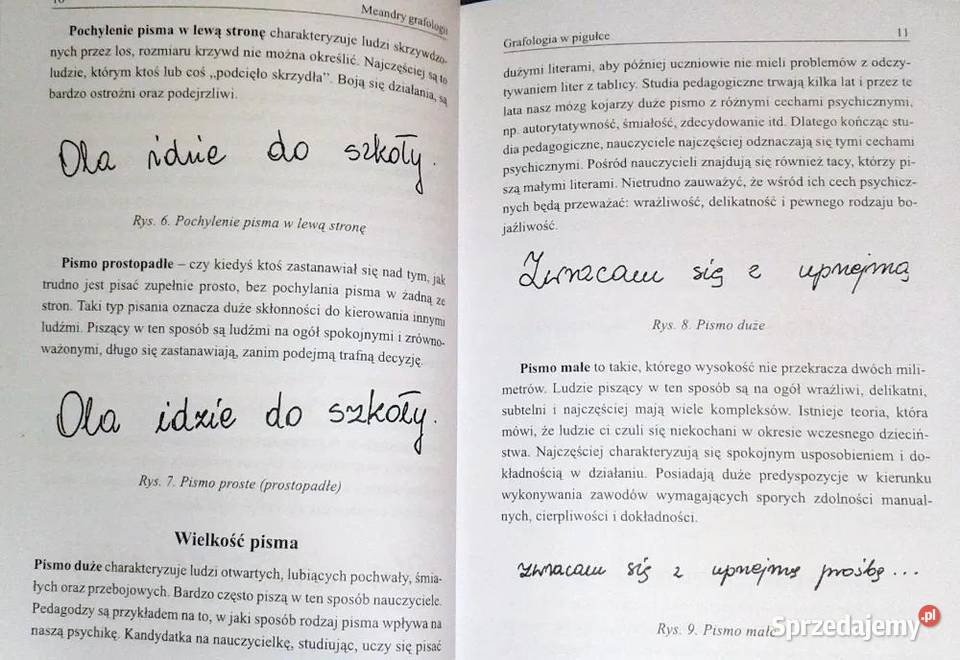 Meandry grafologii
Pochylenie pisma w lewą stronę charakteryzuje ludzi skrzywdzo-
nych przez los, rozmiaru krzywd nie można określić. Najczęściej są to
ludzie, którym ktoś lub coś „podcięło skrzydła”. Boją się działania, są
bardzo ostrożni oraz podejrzliwi.
Ola idzie do szkoły.
Rys. 6. Pochylenie pisma w lewą stronę
Pismo prostopadłe – czy kiedyś ktoś zastanawiał się nad tym, jak
trudno jest pisać zupełnie prosto, bez pochylania pisma w żadną ze
stron. Taki typ pisania oznacza duże skłonności do kierowania innymi
ludźmi. Piszący w ten sposób są ludźmi na ogół spokojnymi i zrówno-
ważonymi, długo się zastanawiają, zanim podejmą trafną decyzję.
Ola idzie do szkoły.
Rys. 7. Pismo proste (prostopadłe)
Wielkość pisma
Pismo duże charakteryzuje ludzi otwartych, lubiących pochwały, śmia-
łych oraz przebojowych. Bardzo często piszą w ten sposób nauczyciele.
Pedagodzy są przykładem na to, w jaki sposób rodzaj pisma wpływa na
naszą psychikę. Kandydatka na nauczycielkę, studiując, uczy się pisać
Grafologia w pigułce 11
dużymi literami, aby później uczniowie nie mieli problemów z odczy-
tywaniem liter z tablicy. Studia pedagogiczne trwają kilka lat i przez te
lata nasz mózg kojarzy duże pismo z różnymi cechami psychicznymi,
np. autorytatywność, śmiałość, zdecydowanie itd. Dlatego kończąc stu-
dia pedagogiczne, nauczyciele najczęściej odznaczają się tymi cechami
psychicznymi. Pośród nauczycieli znajdują się również tacy, którzy pi-
szą małymi literami. Nietrudno zauważyć, że wśród ich cech psychicz-
nych będą przeważać: wrażliwość, delikatność i pewnego rodzaju bo-
jaźliwość.
Zwracam się z uprzejmą
Rys. 8. Pismo duże
Pismo małe to takie, którego wysokość nie przekracza dwóch mili-
metrów. Ludzie piszący w ten sposób są na ogół wrażliwi, delikatni,
subtelni i najczęściej mają wiele kompleksów. Istnieje teoria, która
mówi, że ludzie ci czuli się niekochani w okresie wczesnego dzieciń-
stwa. Najczęściej charakteryzują się spokojnym usposobieniem i do-
kładnością w działaniu. Posiadają duże predyspozycje w kierunku
wykonywania zawodów wymagających sporych zdolności manual-
nych, cierpliwości i dokładności.
zwracam się z uprzejmą prośbą ...
Rys. 9. Pismo małe
Sprzedajemy.pl